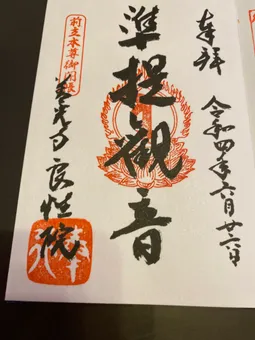 奉拝
令和四年六月廿六日
準提観音
前立本尊御開帳
良性院